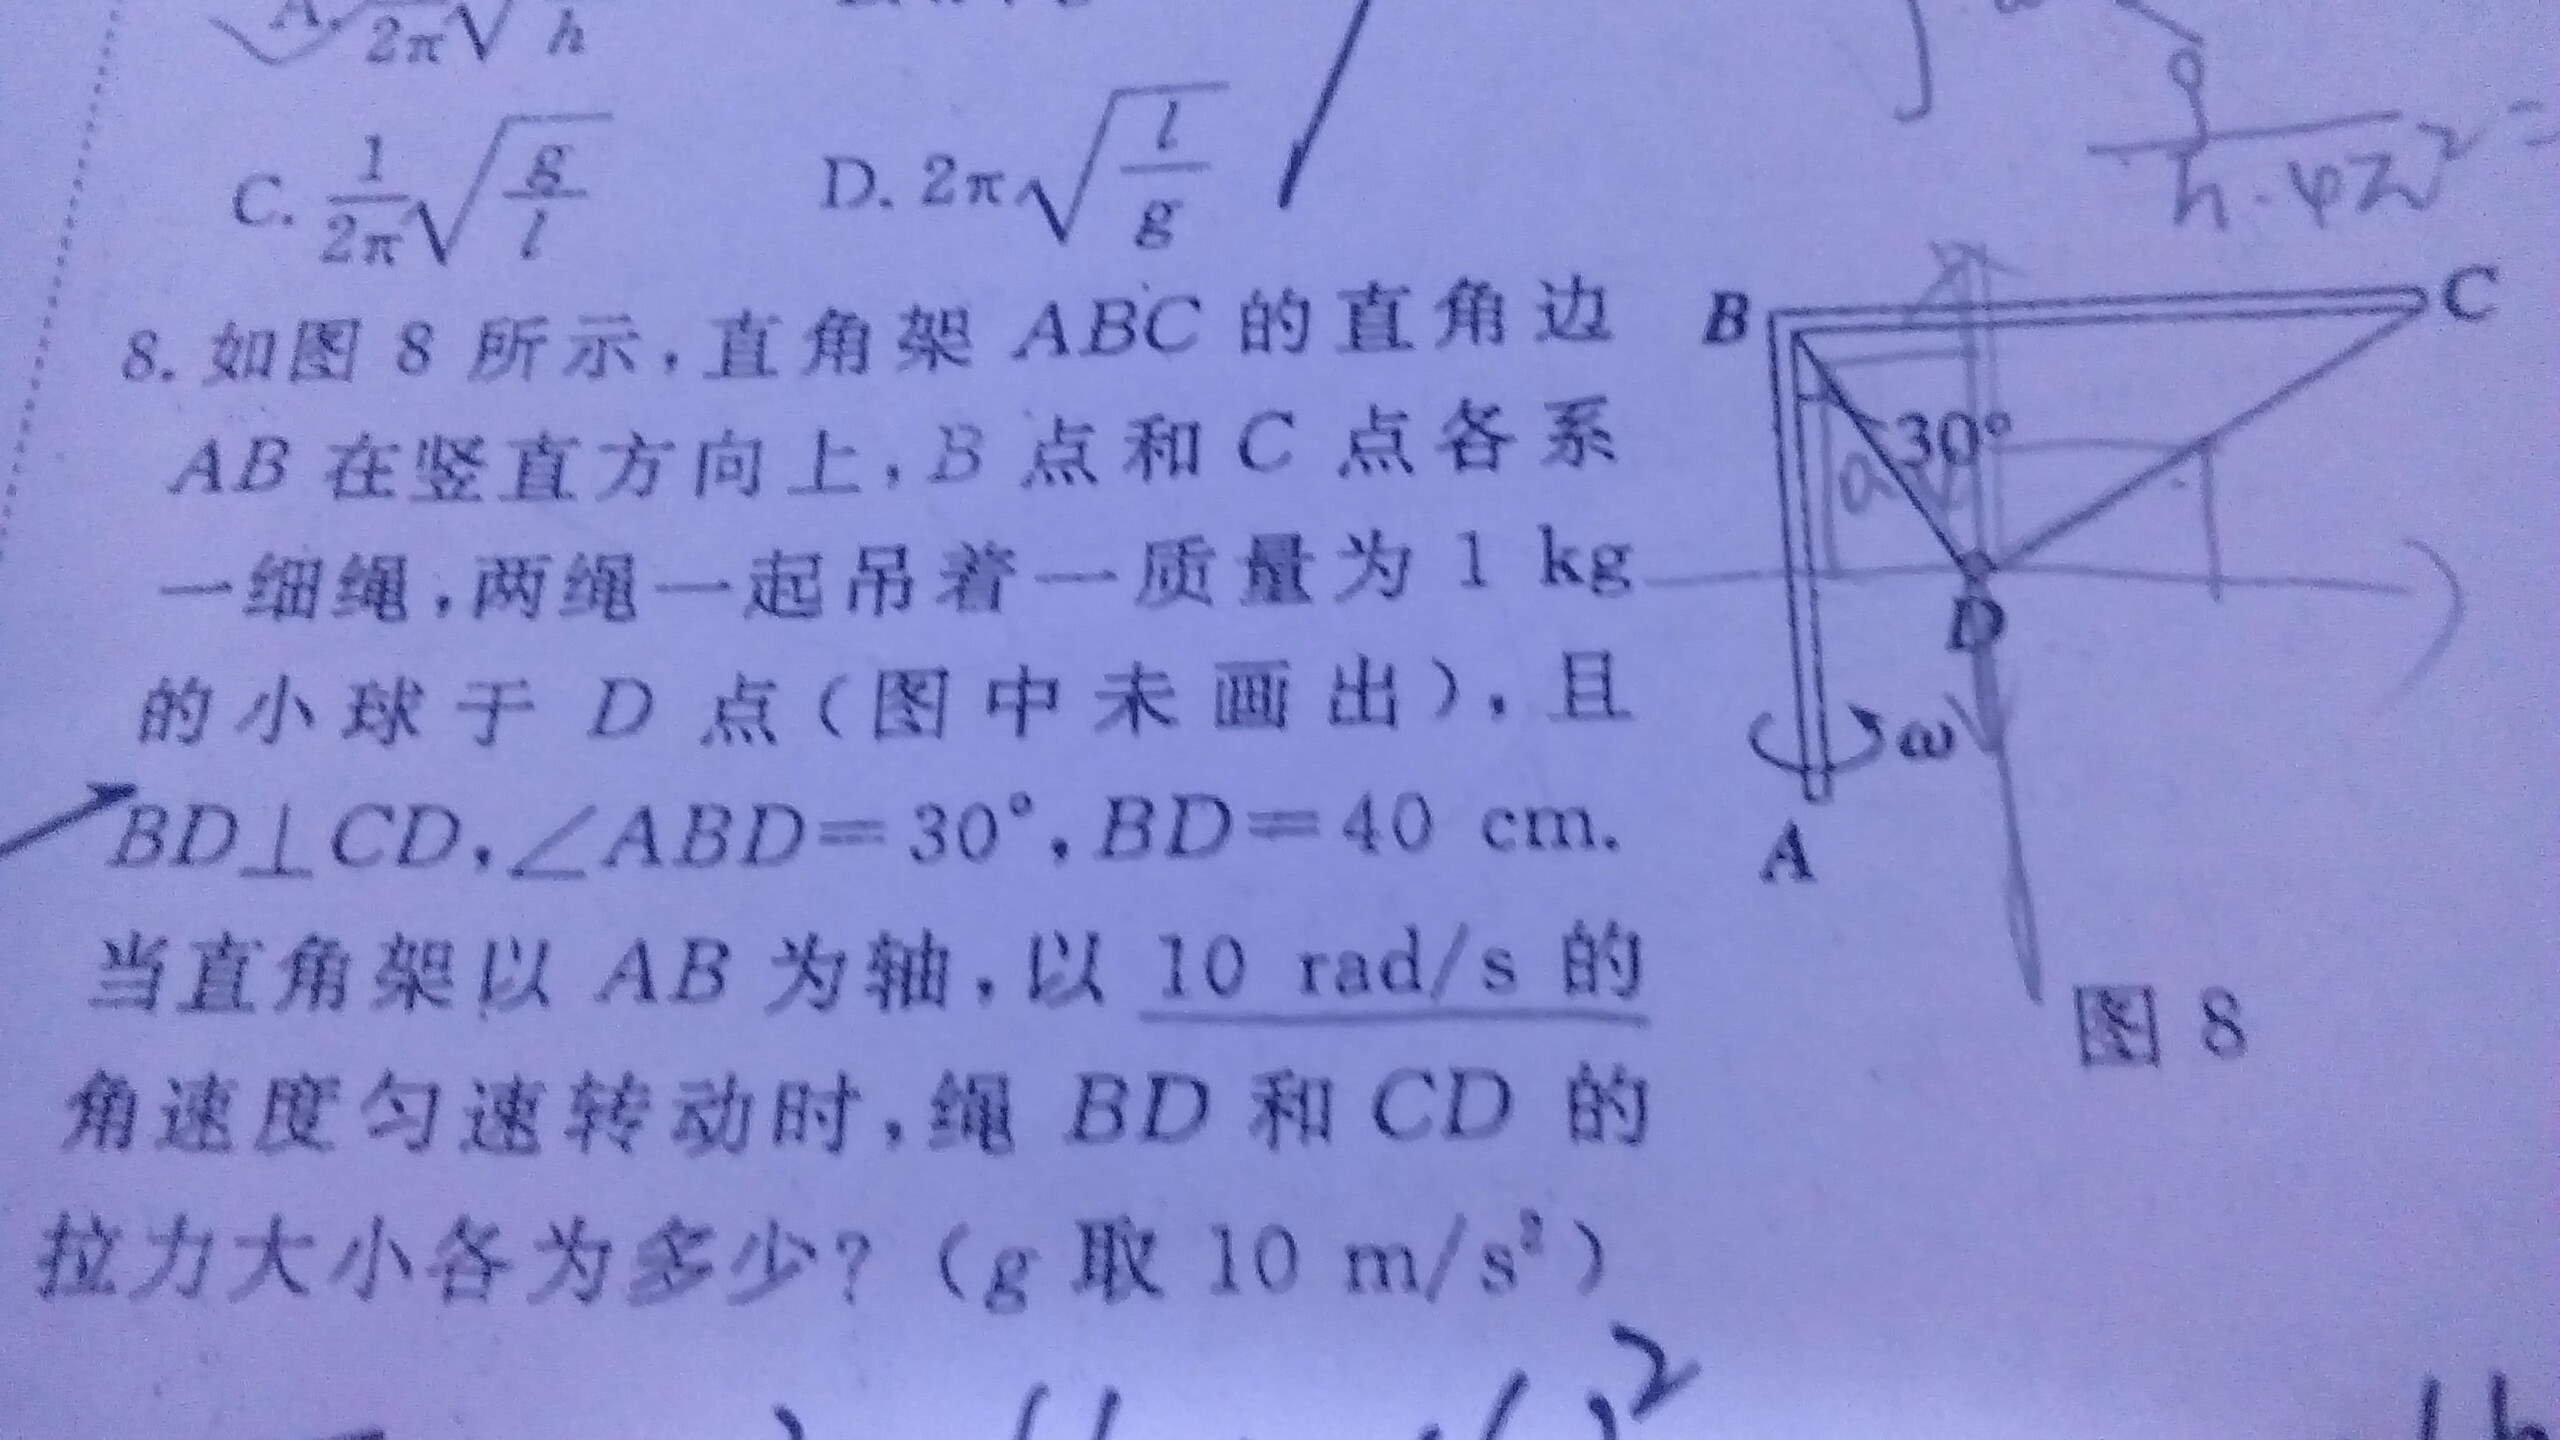 A. 2π√ h
C. \frac{1}{2π}\sqrt{\frac{g}{l}} D. 2π\sqrt{\frac{l}{g}}
8. 如图 8 所示,直角架 ABC 的直角边
AB 在竖直方向上,B 点和 C 点各系
一细绳,两绳一起吊着一质量为 1 kg
的小球于 D 点(图中未画出),且
BD⊥CD,∠ABD=30°,BD=40 cm.
当直角架以 AB 为轴,以 10 rad/s 的
角速度匀速转动时,绳 BD 和 CD 的
拉力大小各为多少?(g 取 10 m/s²)
B
C
30°
D
ω
A
图 8